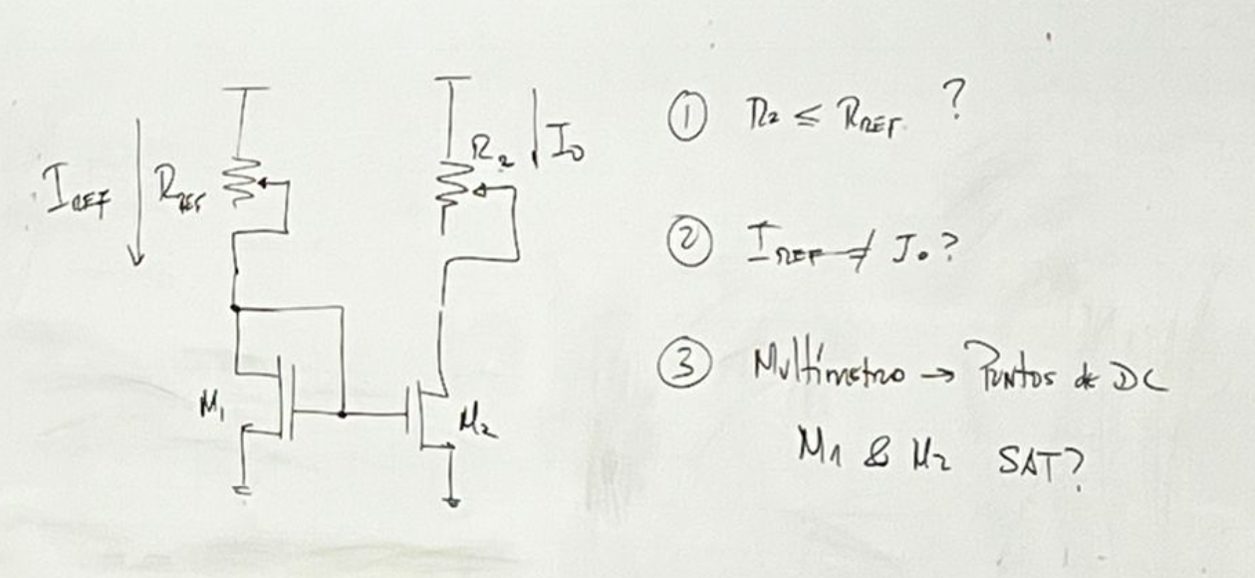 I_REF R_REF
R_2 I_0
M_1 M_2
① R_2 ≤ R_REF ?
② I_REF ≠ I_0?
③ Multímetro → Puntos de DC
M_1 & M_2 SAT?